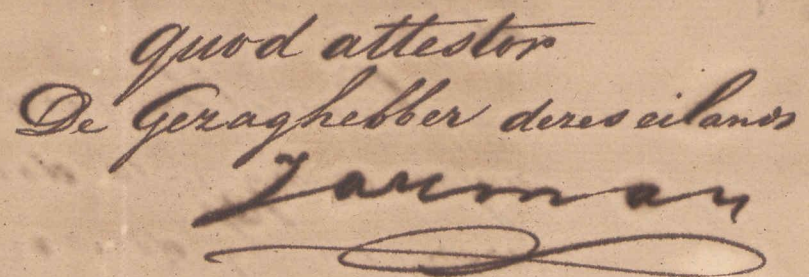 quod attestor
De Gezaghebber dezes eilands
Jarman